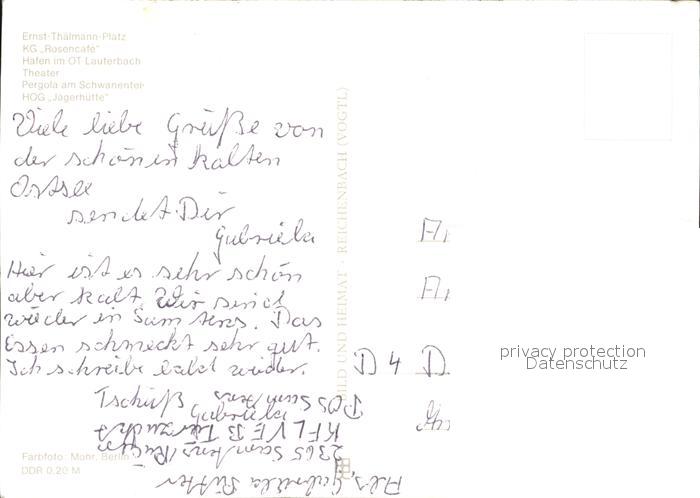 Ernst-Thälmann-Platz
KG „Rosencafé"
Hafen im OT Lauterbach
Theater
Pergola am Schwanenteich
HOG „Jägerhütte"
Viele liebe Grüße von
der schönen kalten
Ostsee
sendet Dir
Gabriela
Hier ist es sehr schön
aber kalt. Wir sind
wieder in Samtens. Das
Essen schmeckt sehr gut.
Ich schreibe bald wieder.
Tschüß
Gabriela
Abs. Gabriela
2365 Samtens/Rügen
KFL VEB Tierzucht
POS Samtens
Farbfoto: Mohr, Berlin
DDR 0,20 M
BILD UND HEIMAT · REICHENBACH (VOGTL)
D 4 D
privacy protection
Datenschutz